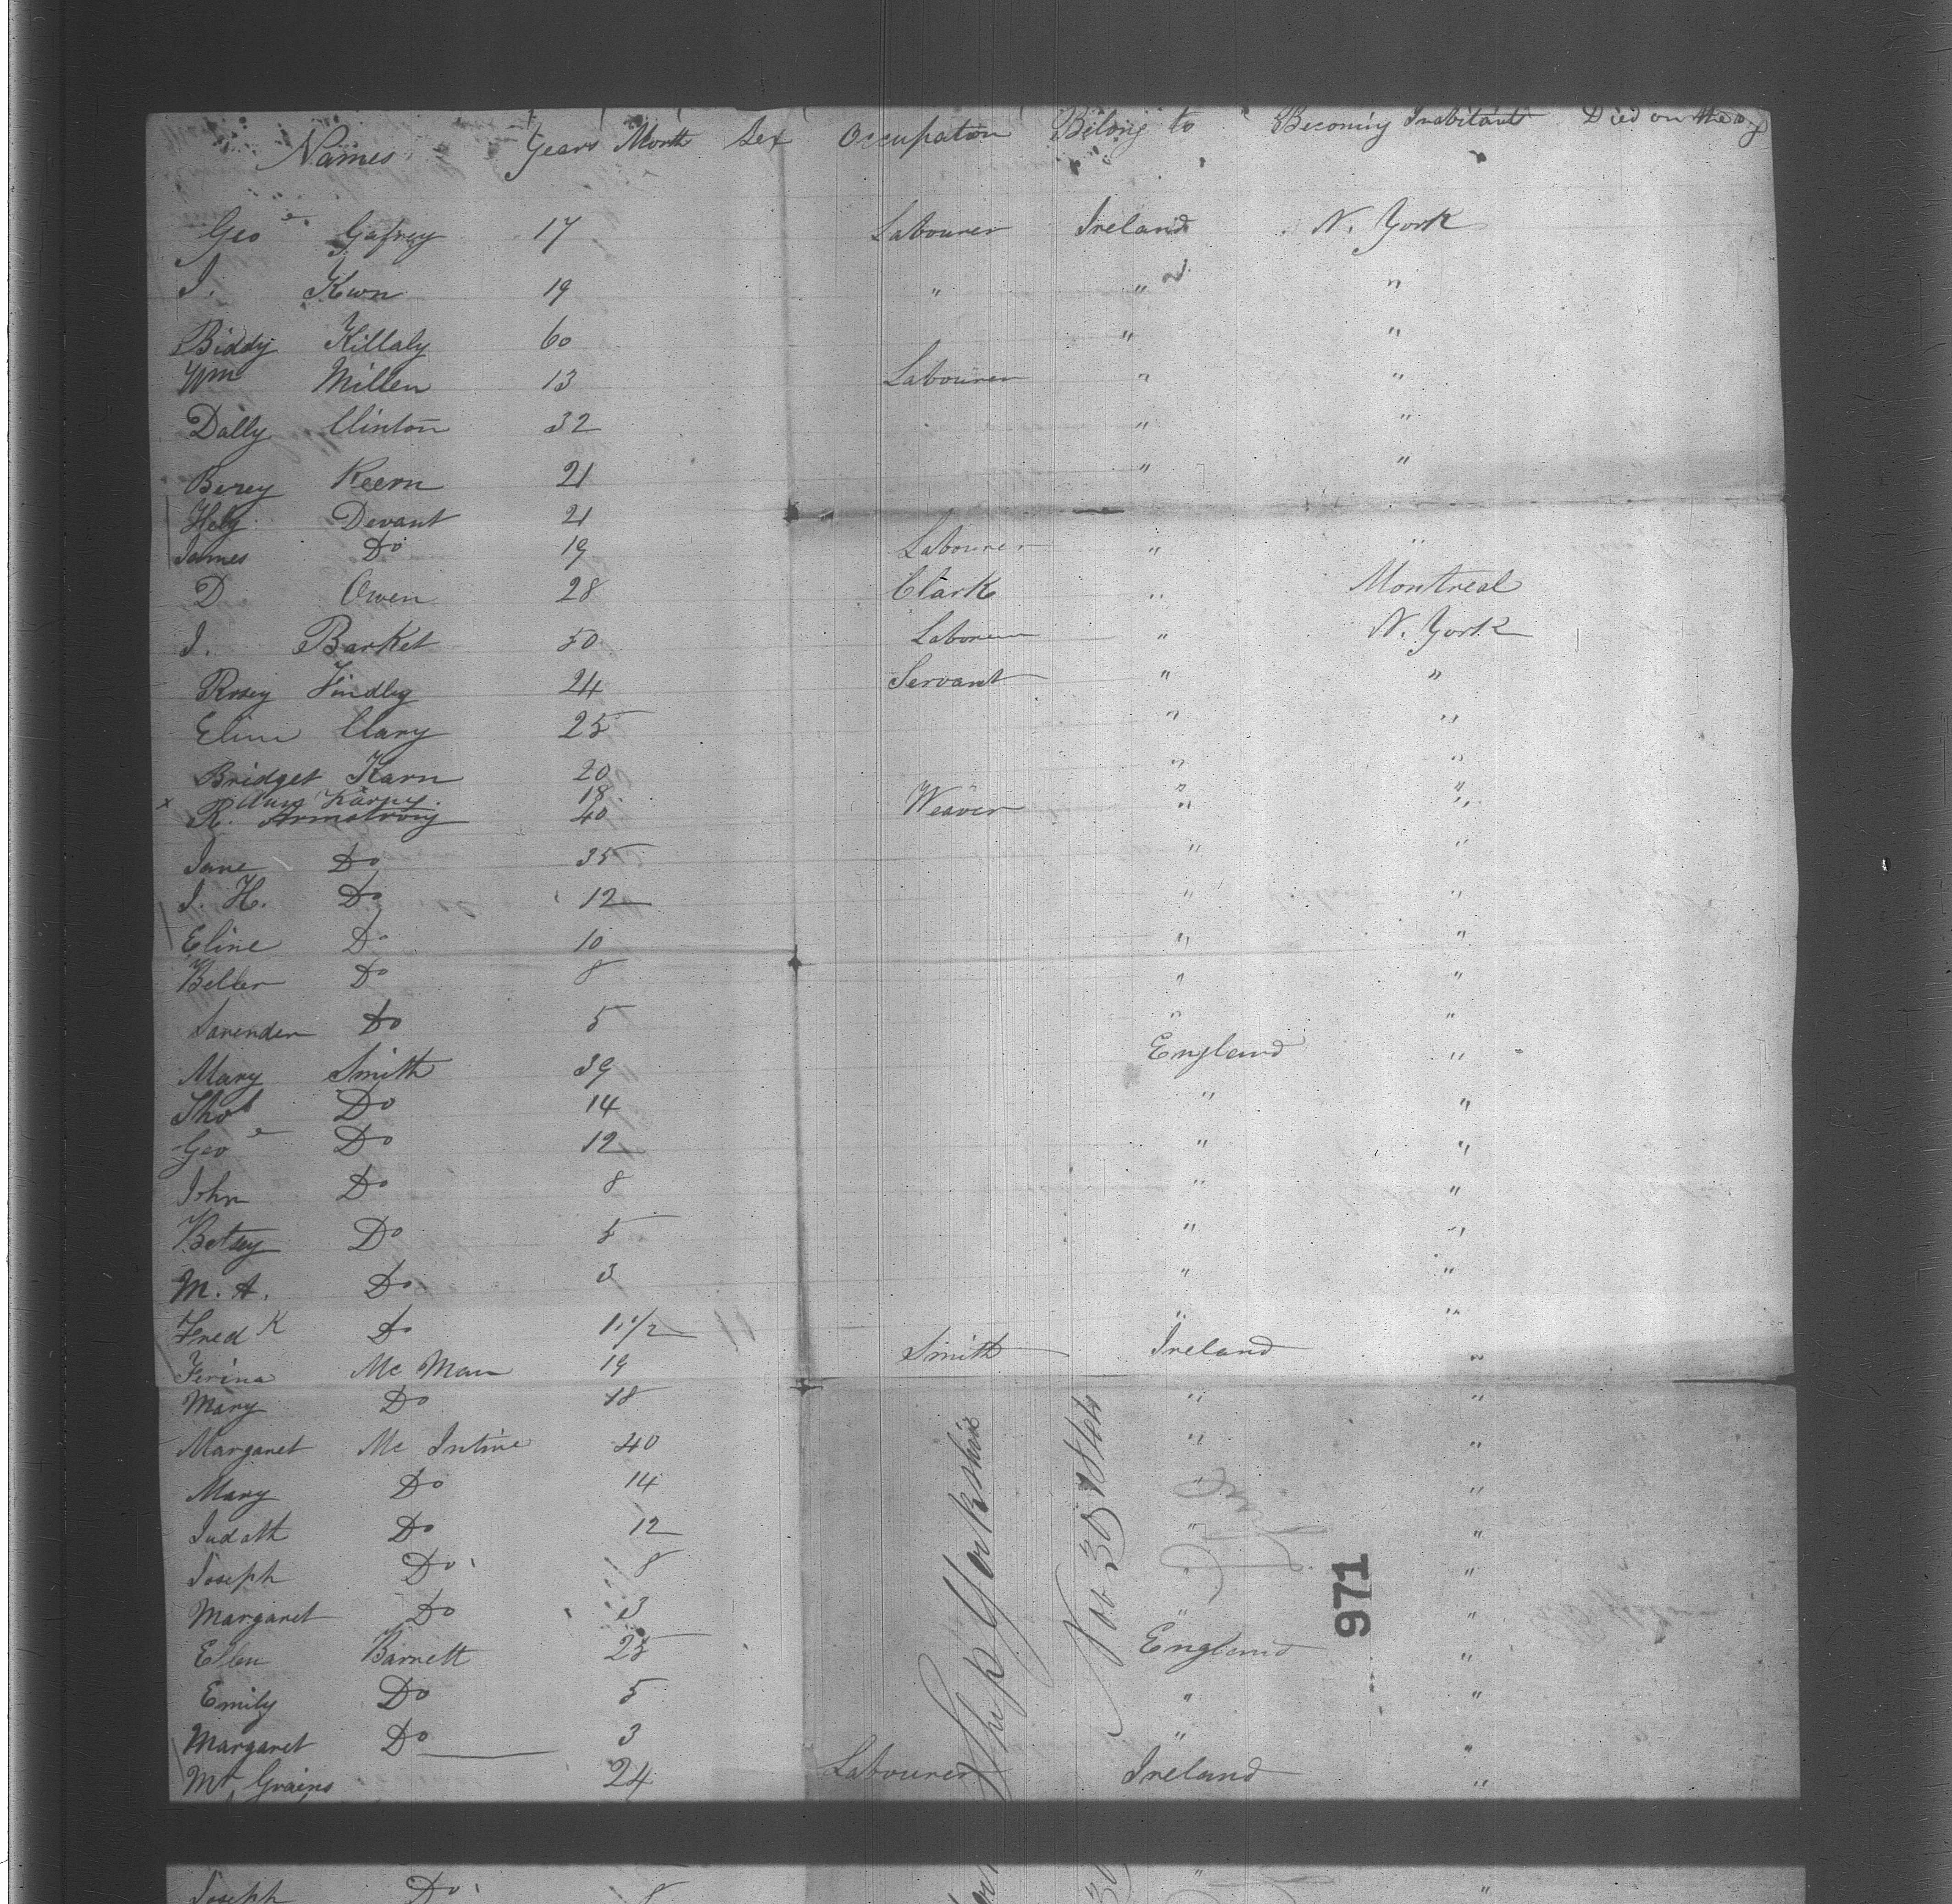 Names Years Month Sex Occupation Belong to Becoming Inabitants Died on the
Geo e Gafney 17 Labourer Ireland N. York
J. Kwn 19 " " "
Biddy Killaly 60 " "
Wm Millen 13 Labourer " "
Dally Clinton 32 " "
Berey Keern 21 " "
Hely Devant 21
James Do 19 Labourer " "
D Owen 28 Clark " Montreal
J. Barket 50 Laborer " N. York
Rosey Findley 24 Servant " "
Elin Clary 25 " "
Bridget Karn 20 " "
Ann Karny. 18 " "
x R. Armstrong 40 Weaver " "
Jane Do 35 " "
J. H. Do 12 " "
Eline Do 10 " "
Beller Do 8 " "
Sarender Do 5 " "
Mary Smith 39 England "
Thos Do 14 " "
Geo e Do 12 " "
John Do 8 " "
Betsy Do 5 " "
M. A. Do 3 " "
Fred K Do 1 1/2 " "
Ferina Mc Man 19 Smith Ireland "
Mary Do 18 " "
Margaret Mc Intire 40 " "
Mary Do 14 " "
Judath Do 12 " "
Joseph Do 8 "
Margaret Do 3 " "
Ellen Barnett 25 England "
Emily Do 5 " "
Margaret Do 3 " "
Mt Grains 24 Labourer Ireland "
Ship Yorkshire
Nov 30 1844
971
Joseph Do 8 " "